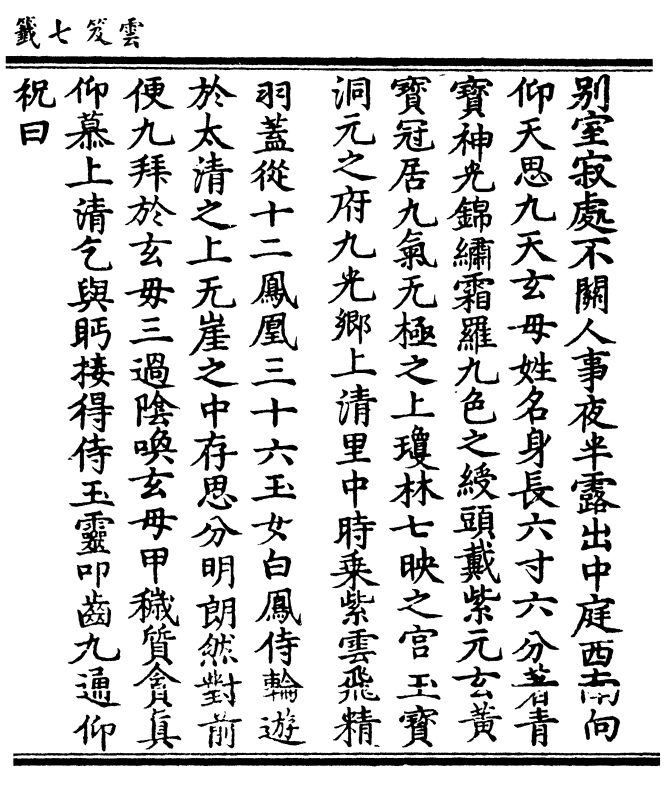 雲笈七籤
别室寂處不關人事夜半露出中庭西南向
仰天思九天玄毋姓名身長六寸六分著青
寶神光錦繡霜羅九色之綬頭戴紫元玄黄
寶冠居九氣无極之上瓊林七映之宫玉寶
洞元之府九光鄉上清里中時乗紫雲飛精
羽蓋從十二鳳凰三十六玉女白鳳侍輪遊
於太清之上无崖之中存思分明朗然對前
便九拜於玄毋三過陰喚玄毋甲穢質貪真
仰慕上清乞與眄接得侍玉靈叩齒九通仰
祝曰